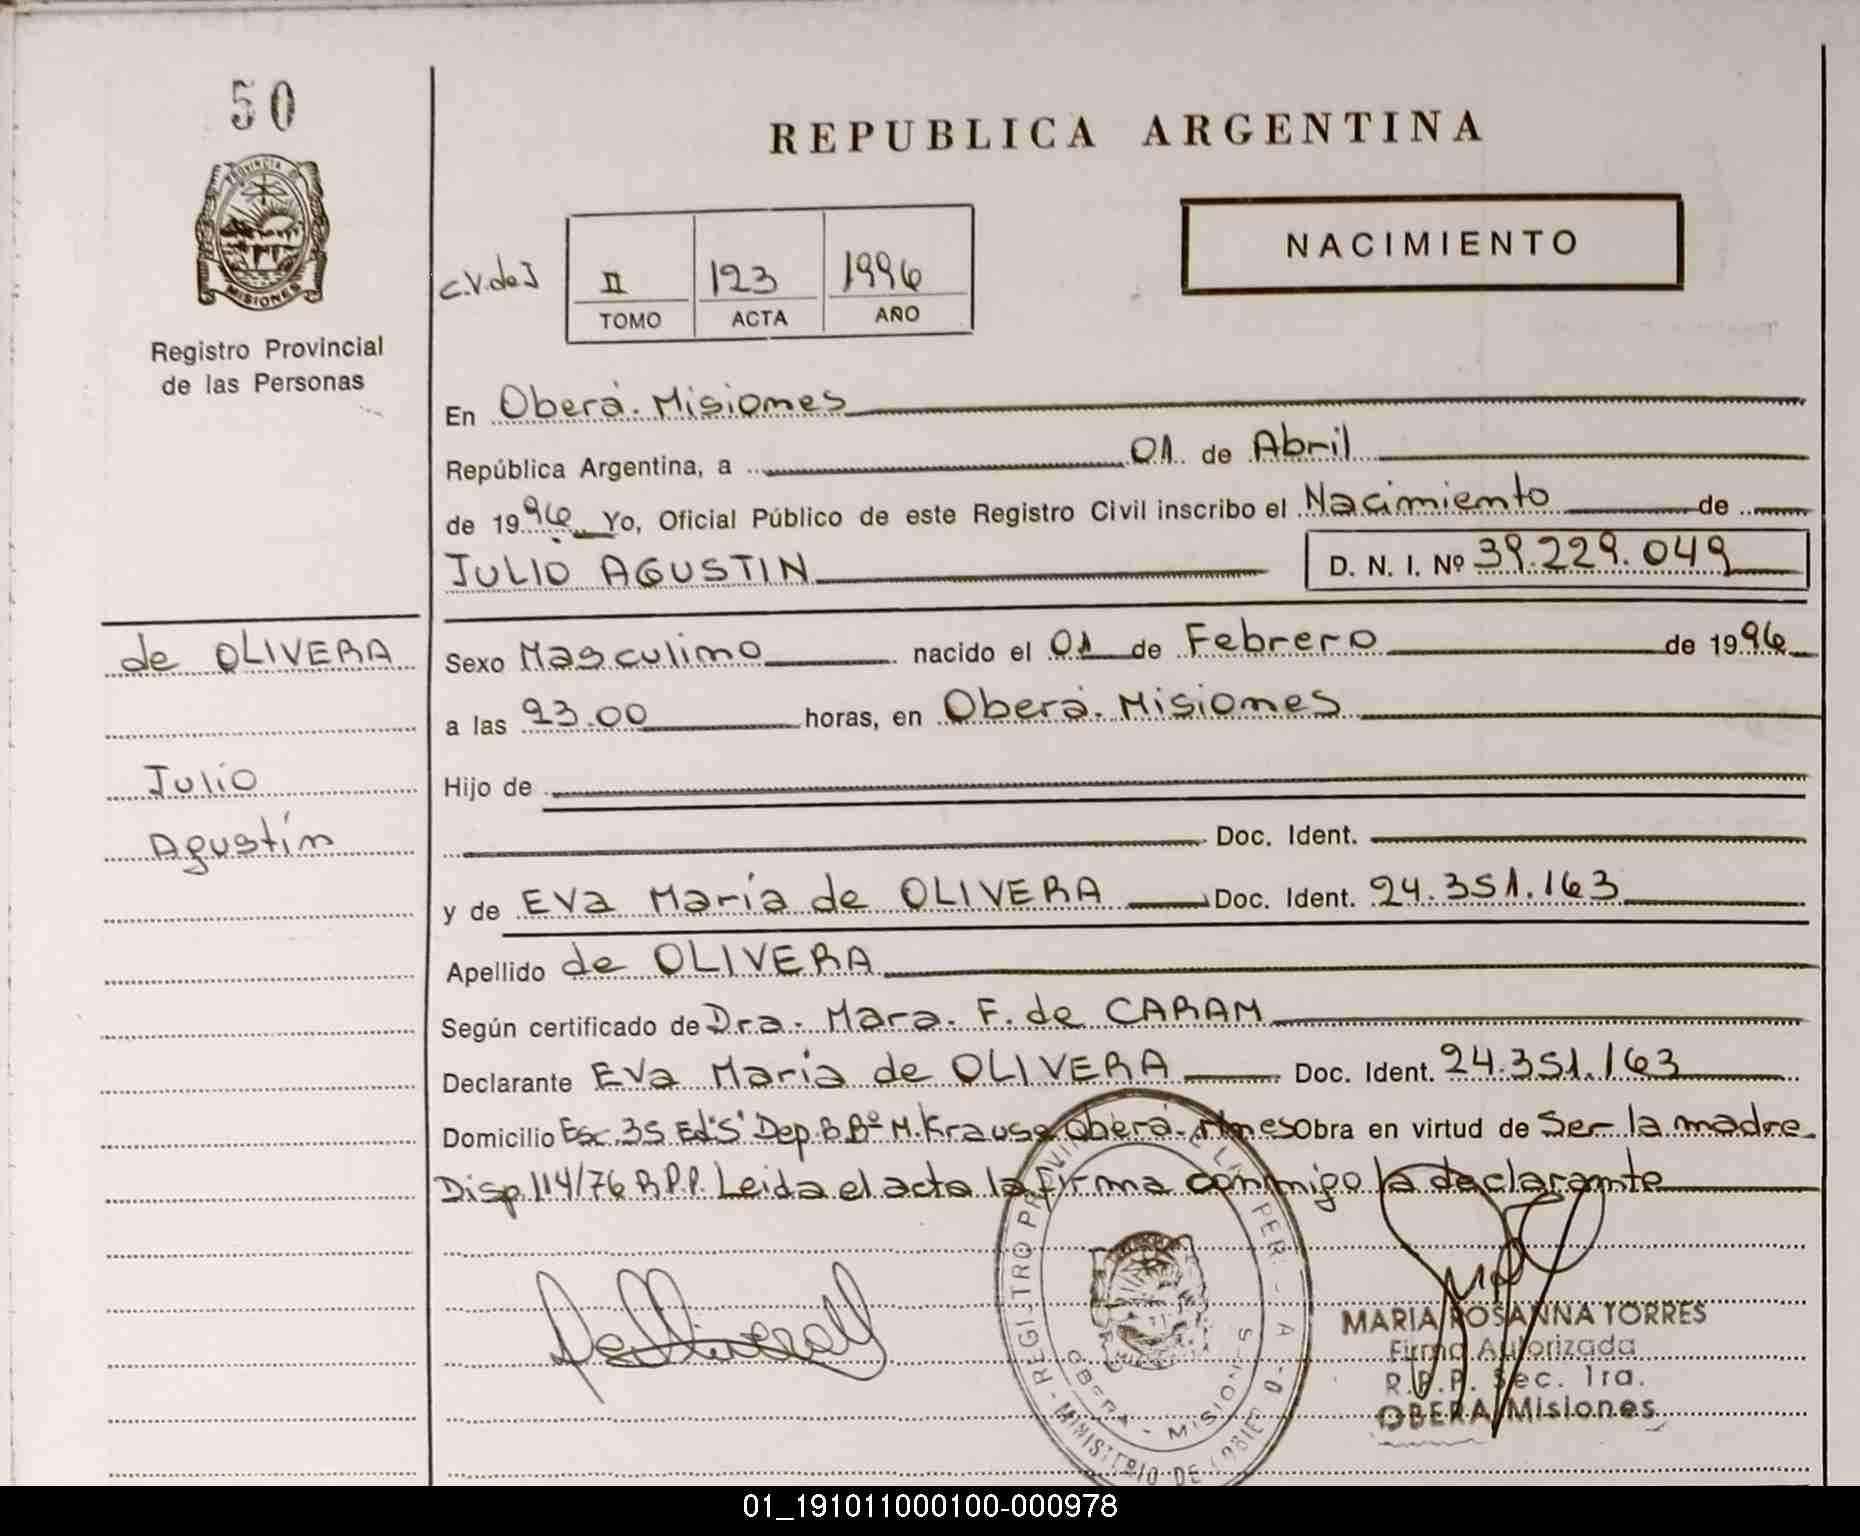 50
REPUBLICA ARGENTINA
PROVINCIA D
MISIONES
Registro Provincial
de las Personas
NACIMIENTO
C.V. de J
II 123 1996
TOMO ACTA AÑO
En Oberá. Misiones
República Argentina, a 01 de Abril
de 1996 Yo, Oficial Público de este Registro Civil inscribo el Nacimiento de
JULIO AGUSTIN D. N. I. Nº 39.229.049
de OLIVERA
Julio
Agustín
Sexo Masculino nacido el 01 de Febrero de 1996
a las 23.00 horas, en Oberá. Misiones
Hijo de
Doc. Ident.
y de Eva María de OLIVERA Doc. Ident. 24.351.163
Apellido de OLIVERA
Según certificado de Dra. Mara. F. de CARAM
Declarante Eva María de OLIVERA Doc. Ident. 24.351.163
Domicilio Esc. 35 Ed"S" Dep. B Bº M. Krause Oberá. Mnes Obra en virtud de Ser la madre.
Disp. 114/76 R.P.P. Leida el acta la firma conmigo la declarante
OBERA - MISIONES
MINISTERIO DE
MARIA ROSANNA TORRES
Firma Autorizada
R.P.P. Sec. 1ra.
OBERA Misiones
01_191011000100-000978